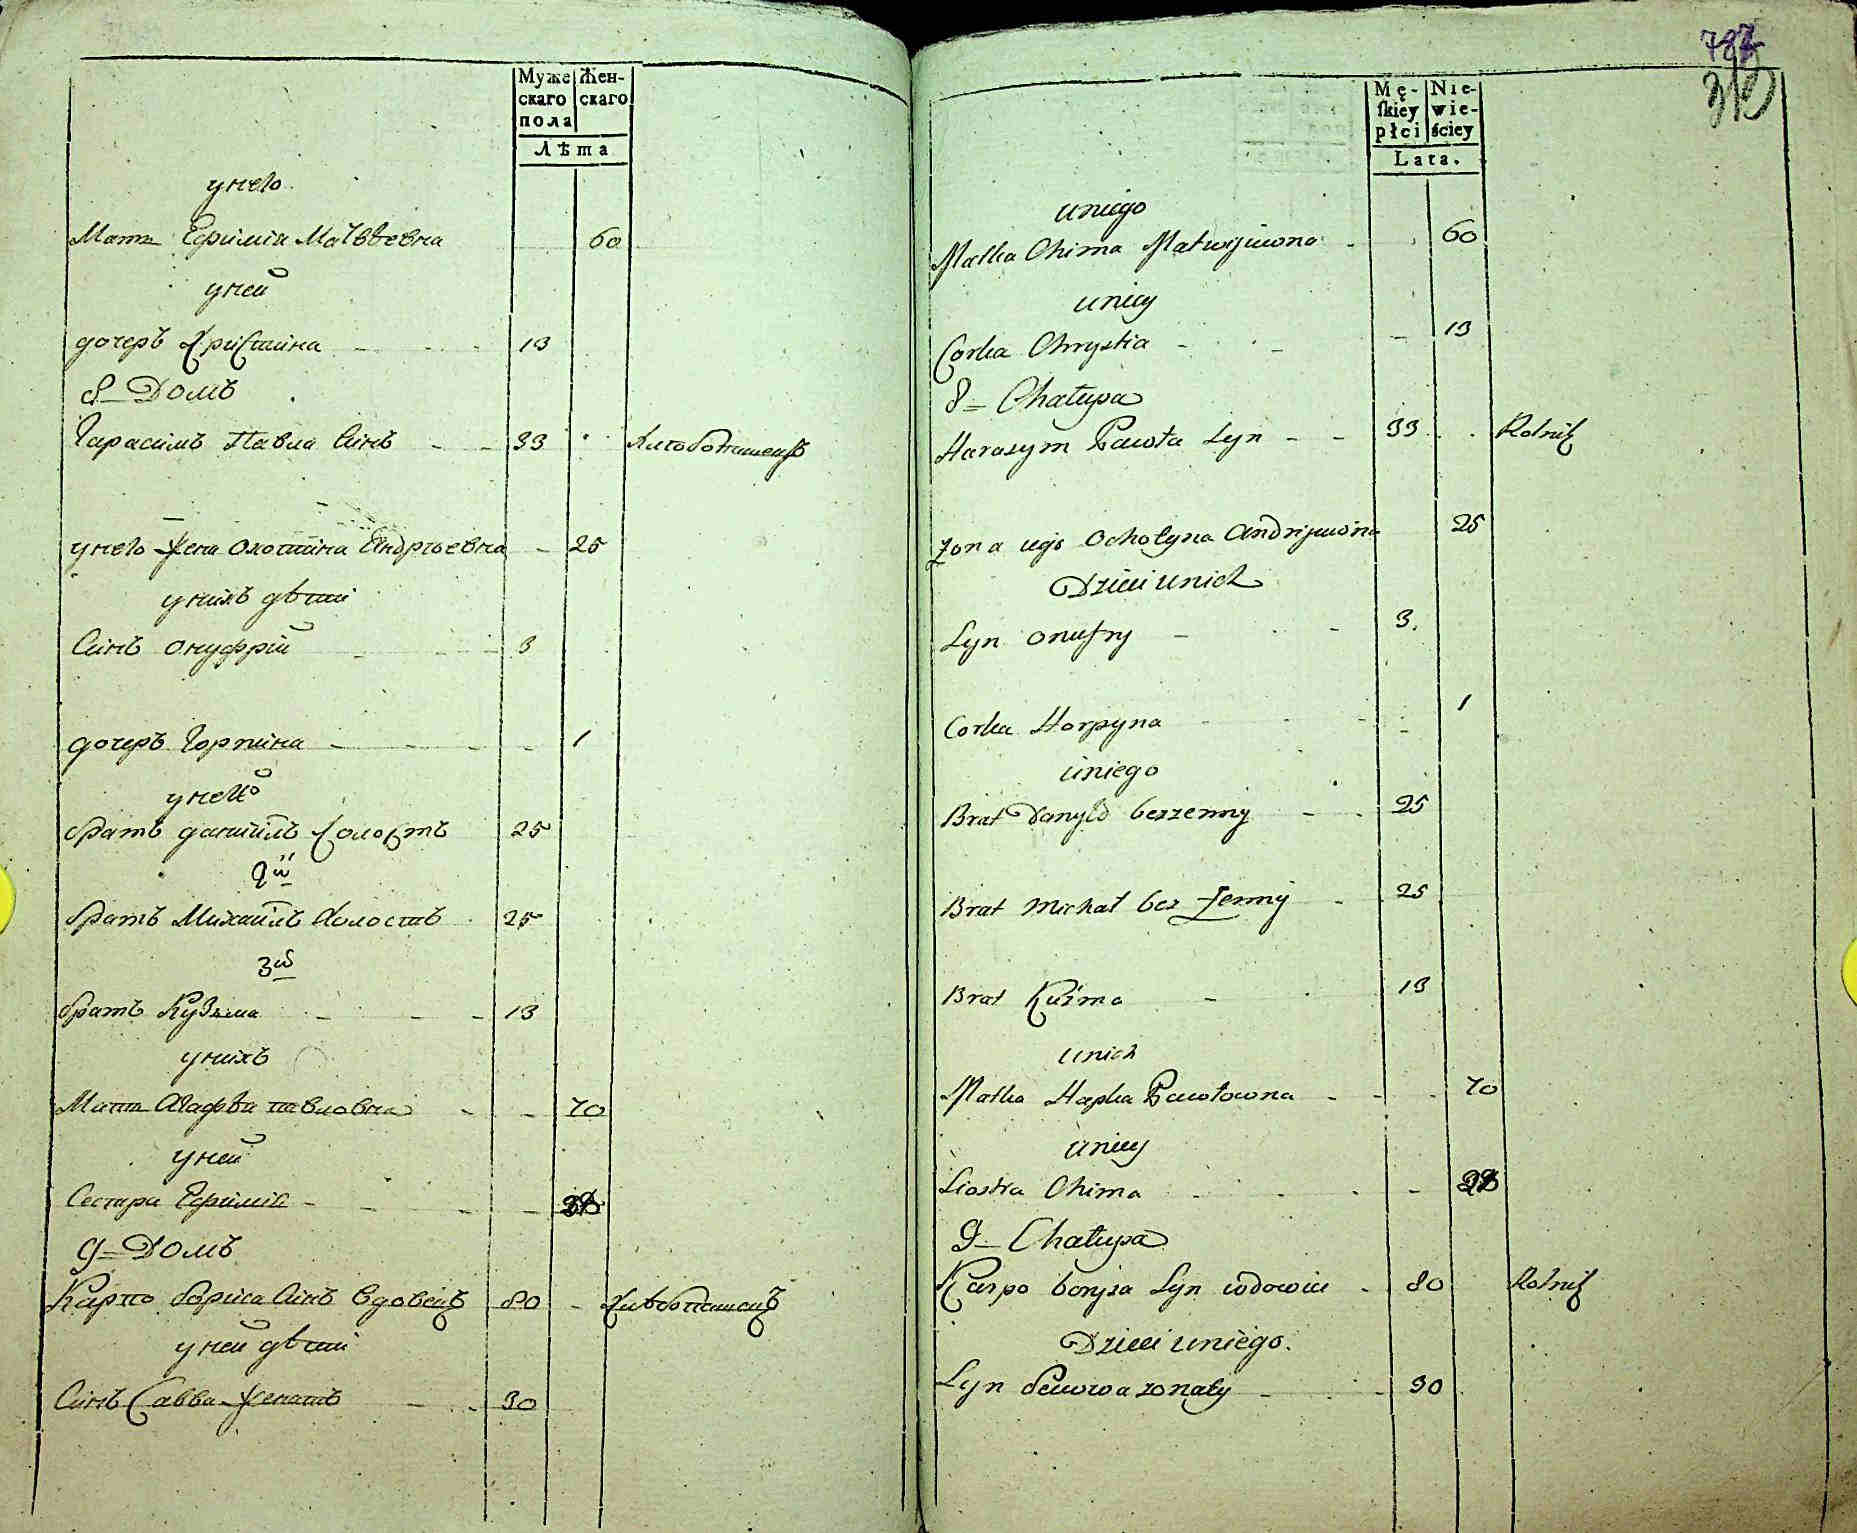 Муже Жен-
скаго скаго
пола
Лѣта
унего
Мать Ефимія Матвѣевна 60
уней
дочеръ Христина 13
8 Домъ
Гарасимъ Павла Синъ 33 Хлѣбопашецъ
унего Жена Охотина Андрѣевна 25
унихъ дѣти
Синъ Онуфрій 3
дочеръ Горпина 1
унего
братъ данійлъ Холостъ 25
2й
братъ Михайлъ Холостъ 25
3й
братъ Кузьма 13
унихъ
Мать Агафѣя павловна 70
уней
Сестра Ефимія
9 Домъ
Карпо бориса Синъ вдовецъ 80 Хлѣбопашецъ
уней дѣти
Синъ Савва Женатъ 30
787
Mę- Nie-
ſkiey wie-
płci ściey
Lata.
uniego
Matka Chima Matwyiwona 60
uniey
Corka Chrystia 13
8 Chałupa
Harasym Pawła Syn 33 Rolnik
Zona iego Ochotyna Andrijwona 25
Dzieci unich
Syn Onufry 3.
Corka Horpyna 1
uniego
Brat Danyło bezzenny 25
Brat Michał bez żenny 25
Brat Kuźma 13
unich
Matka Hapka Pawłowna 70
uniey
Siostra Chima
9 Chałupa
Karpo borysa Syn wdowiec 80 Rolnik
Dzieci uniego.
Syn Sawa zonaty 30